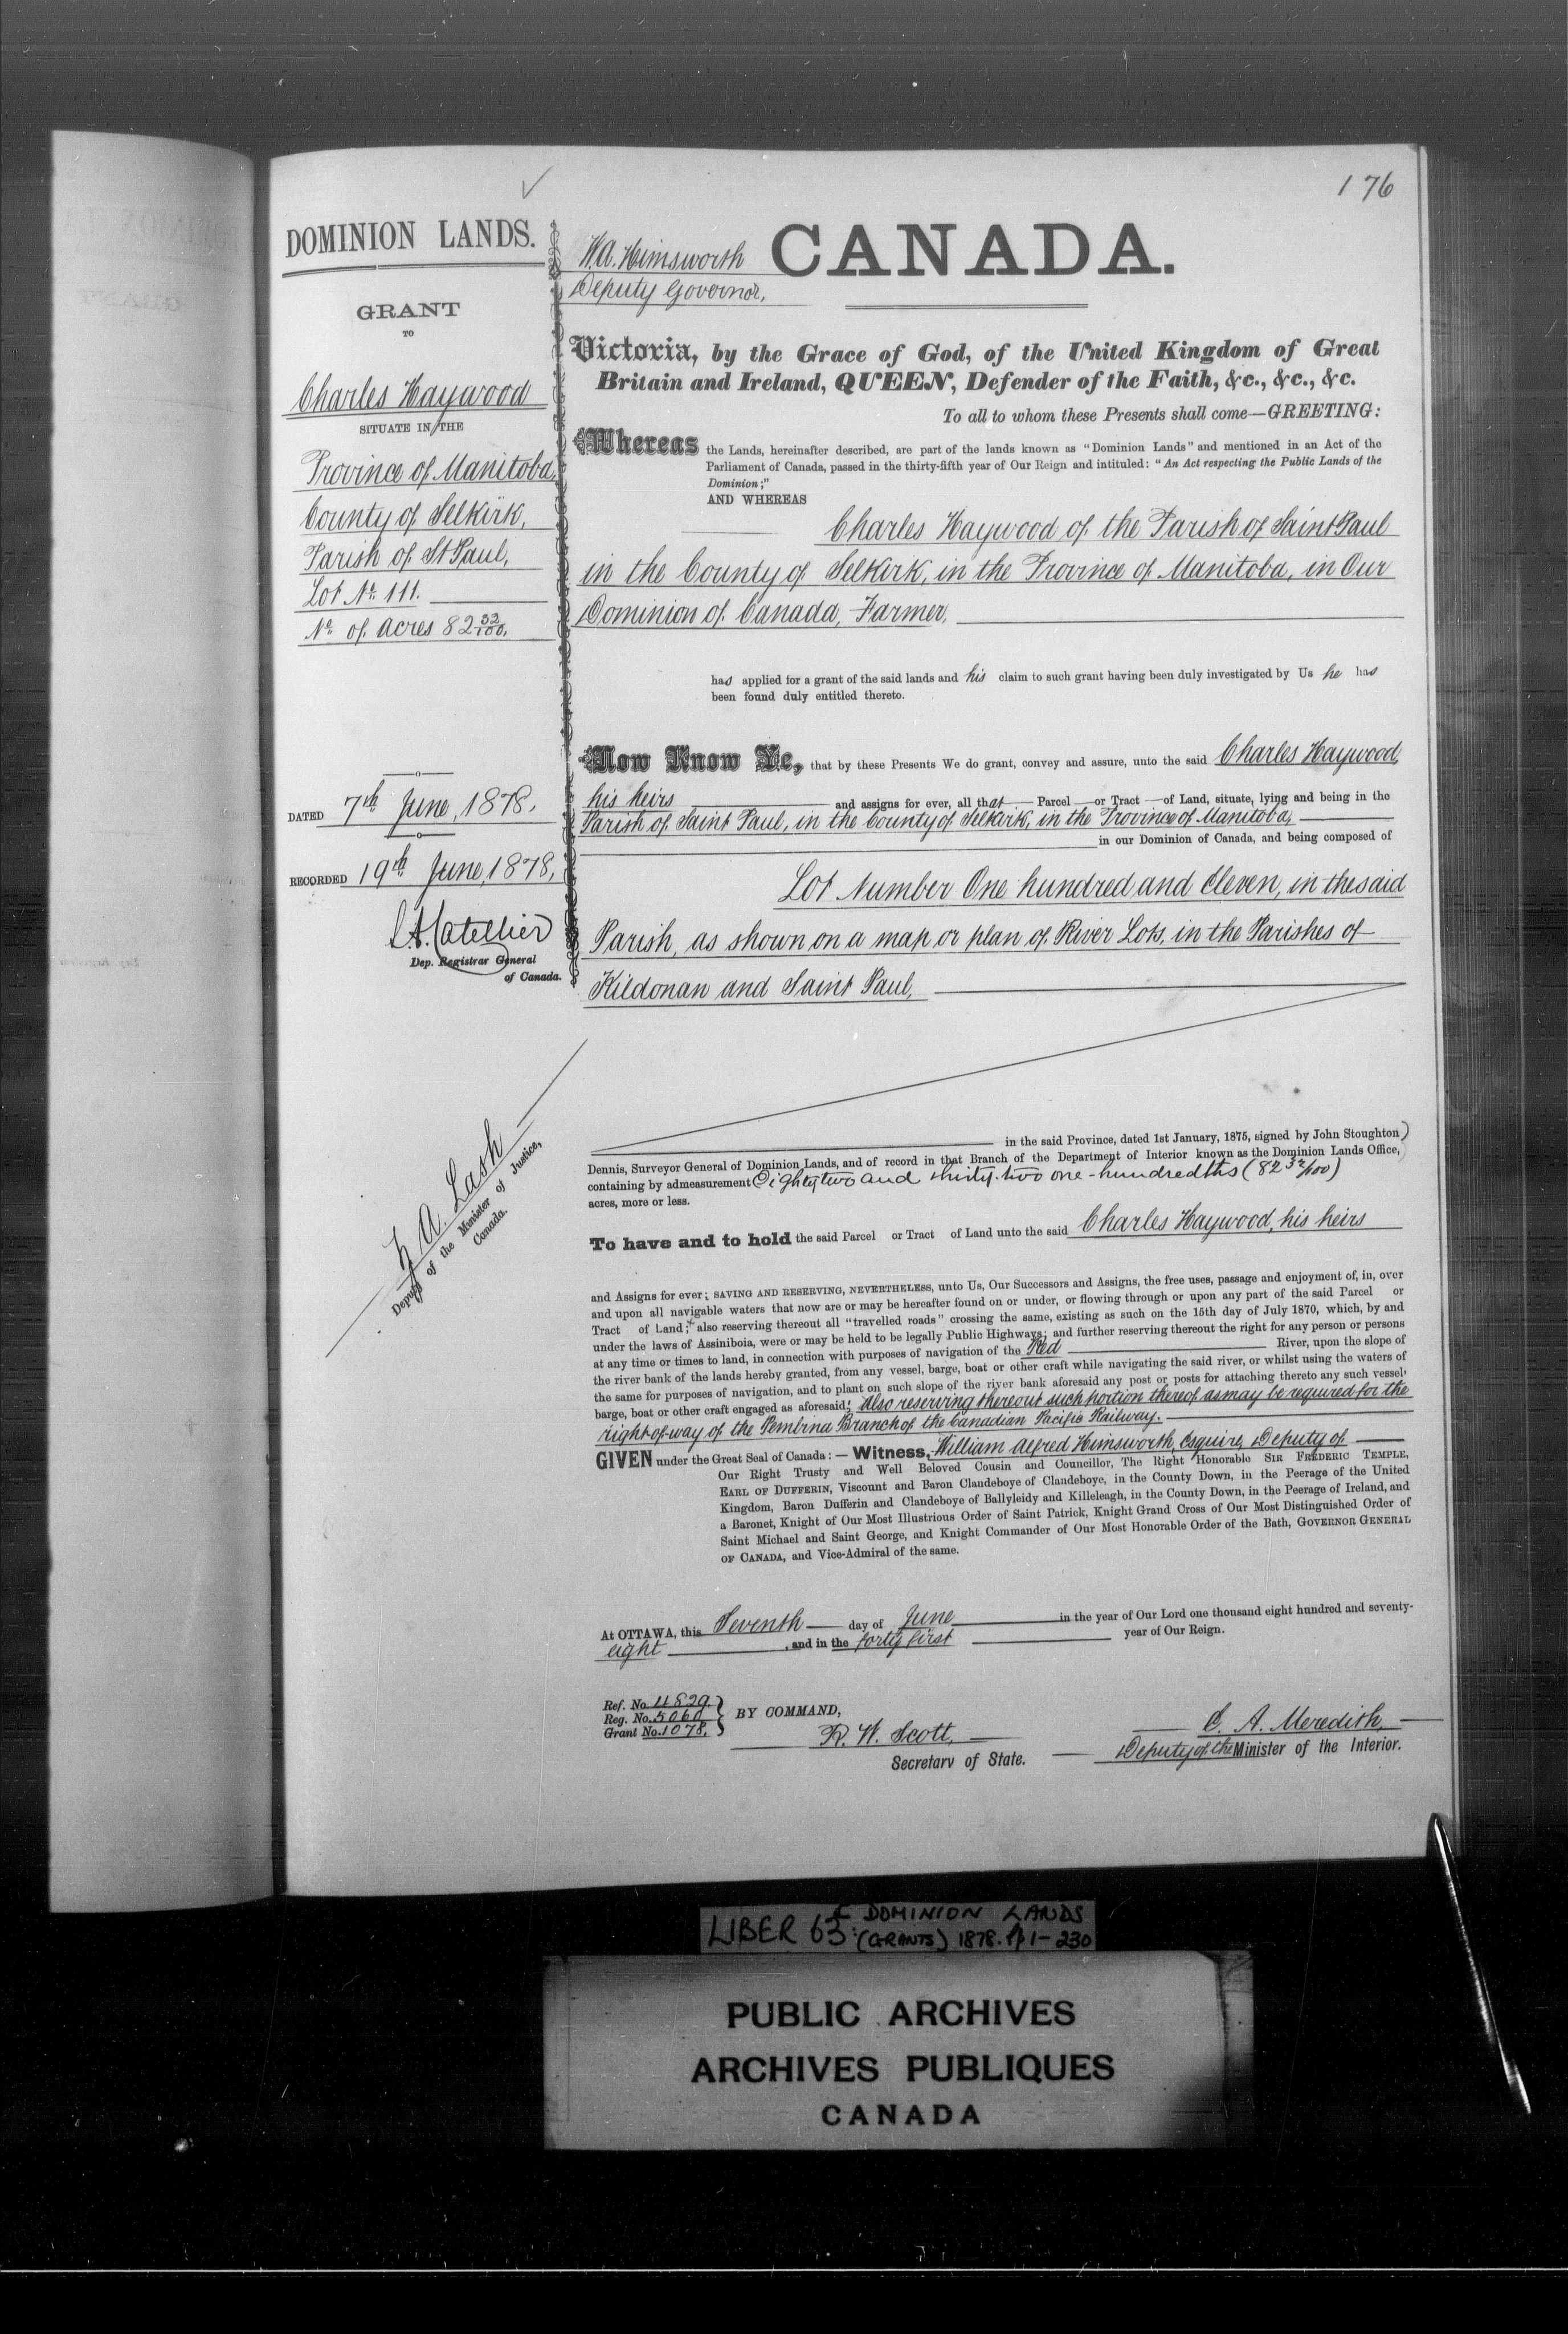 176
DOMINION LANDS.
GRANT
TO
Charles Haywood
SITUATE IN THE
Province of Manitoba,
County of Selkirk,
Parish of St Paul,
Lot No. 111.
No. of acres 82 32/100.
DATED 7th June, 1878.
RECORDED 19th June, 1878,
Dep. Registrar General
of Canada.
Z A. Lash
Deputy of the Minister of Justice,
Canada.
W.A. Himsworth
Deputy Governor,
CANADA.
Victoria, by the Grace of God, of the United Kingdom of Great
Britain and Ireland, QUEEN, Defender of the Faith, &c., &c., &c.
To all to whom these Presents shall come—GREETING:
Whereas the Lands, hereinafter described, are part of the lands known as "Dominion Lands" and mentioned in an Act of the
Parliament of Canada, passed in the thirty-fifth year of Our Reign and intituled: "An Act respecting the Public Lands of the
Dominion;"
AND WHEREAS
Charles Haywood of the Parish of Saint Paul
in the County of Selkirk, in the Province of Manitoba, in Our
Dominion of Canada, Farmer,
has applied for a grant of the said lands and his claim to such grant having been duly investigated by Us he has
been found duly entitled thereto.
Now Know Ye, that by these Presents We do grant, convey and assure, unto the said Charles Haywood,
his heirs and assigns for ever, all that Parcel or Tract of Land, situate, lying and being in the
Parish of Saint Paul, in the County of Selkirk, in the Province of Manitoba,
in our Dominion of Canada, and being composed of
Lot Number One hundred and Eleven, in the said
Parish, as shown on a map or plan of River Lots, in the Parishes of
Kildonan and Saint Paul,
in the said Province, dated 1st January, 1875, signed by John Stoughton
Dennis, Surveyor General of Dominion Lands, and of record in that Branch of the Department of Interior known as the Dominion Lands Office,
containing by admeasurement Eighty two and thirty-two one-hundredths (82 32/100)
acres, more or less.
To have and to hold the said Parcel or Tract of Land unto the said Charles Haywood, his heirs
and Assigns for ever; SAVING AND RESERVING, NEVERTHELESS, unto Us, Our Successors and Assigns, the free uses, passage and enjoyment of, in, over
and upon all navigable waters that now are or may be hereafter found on or under, or flowing through or upon any part of the said Parcel or
Tract of Land; also reserving thereout all "travelled roads" crossing the same, existing as such on the 15th day of July 1870, which, by and
under the laws of Assiniboia, were or may be held to be legally Public Highways; and further reserving thereout the right for any person or persons
at any time or times to land, in connection with purposes of navigation of the Red River, upon the slope of
the river bank of the lands hereby granted, from any vessel, barge, boat or other craft while navigating the said river, or whilst using the waters of
the same for purposes of navigation, and to plant on such slope of the river bank aforesaid any post or posts for attaching thereto any such vessel,
barge, boat or other craft engaged as aforesaid; Also reserving thereout such portion thereof as may be required for the
right-of-way of the Pembina Branch of the Canadian Pacific Railway.
GIVEN under the Great Seal of Canada:— Witness, William Alfred Himsworth, Esquire, Deputy of
Our Right Trusty and Well Beloved Cousin and Councillor, The Right Honorable SIR FREDERIC TEMPLE,
EARL OF DUFFERIN, Viscount and Baron Clandeboye of Clandeboye, in the County Down, in the Peerage of the United
Kingdom, Baron Dufferin and Clandeboye of Ballyleidy and Killeleagh, in the County Down, in the Peerage of Ireland, and
a Baronet, Knight of Our Most Illustrious Order of Saint Patrick, Knight Grand Cross of Our Most Distinguished Order of
Saint Michael and Saint George, and Knight Commander of Our Most Honorable Order of the Bath, GOVERNOR GENERAL
OF CANADA, and Vice-Admiral of the same.
At OTTAWA, this Seventh day of June in the year of Our Lord one thousand eight hundred and seventy-
eight, and in the forty first year of Our Reign.
Ref. No. 11829.
Reg. No. 5060
Grant No. 1078.
BY COMMAND,
R. W. Scott,
Secretary of State.
E. A. Meredith,
Deputy of the Minister of the Interior.
LIBER 63: DOMINION LANDS
(GRANTS) 1878. pp 1-230
PUBLIC ARCHIVES
ARCHIVES PUBLIQUES
CANADA